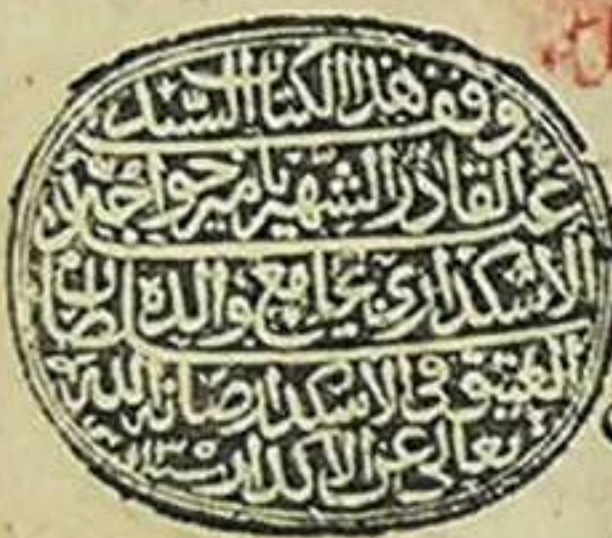 وقف هذا الكتاب السيد
عبد القادر الشهير بامير خواجه
الاسكداري بجامع والده سلطان
العتيق في الاسكدار صانه الله
تعالى عن الاكدار سنه